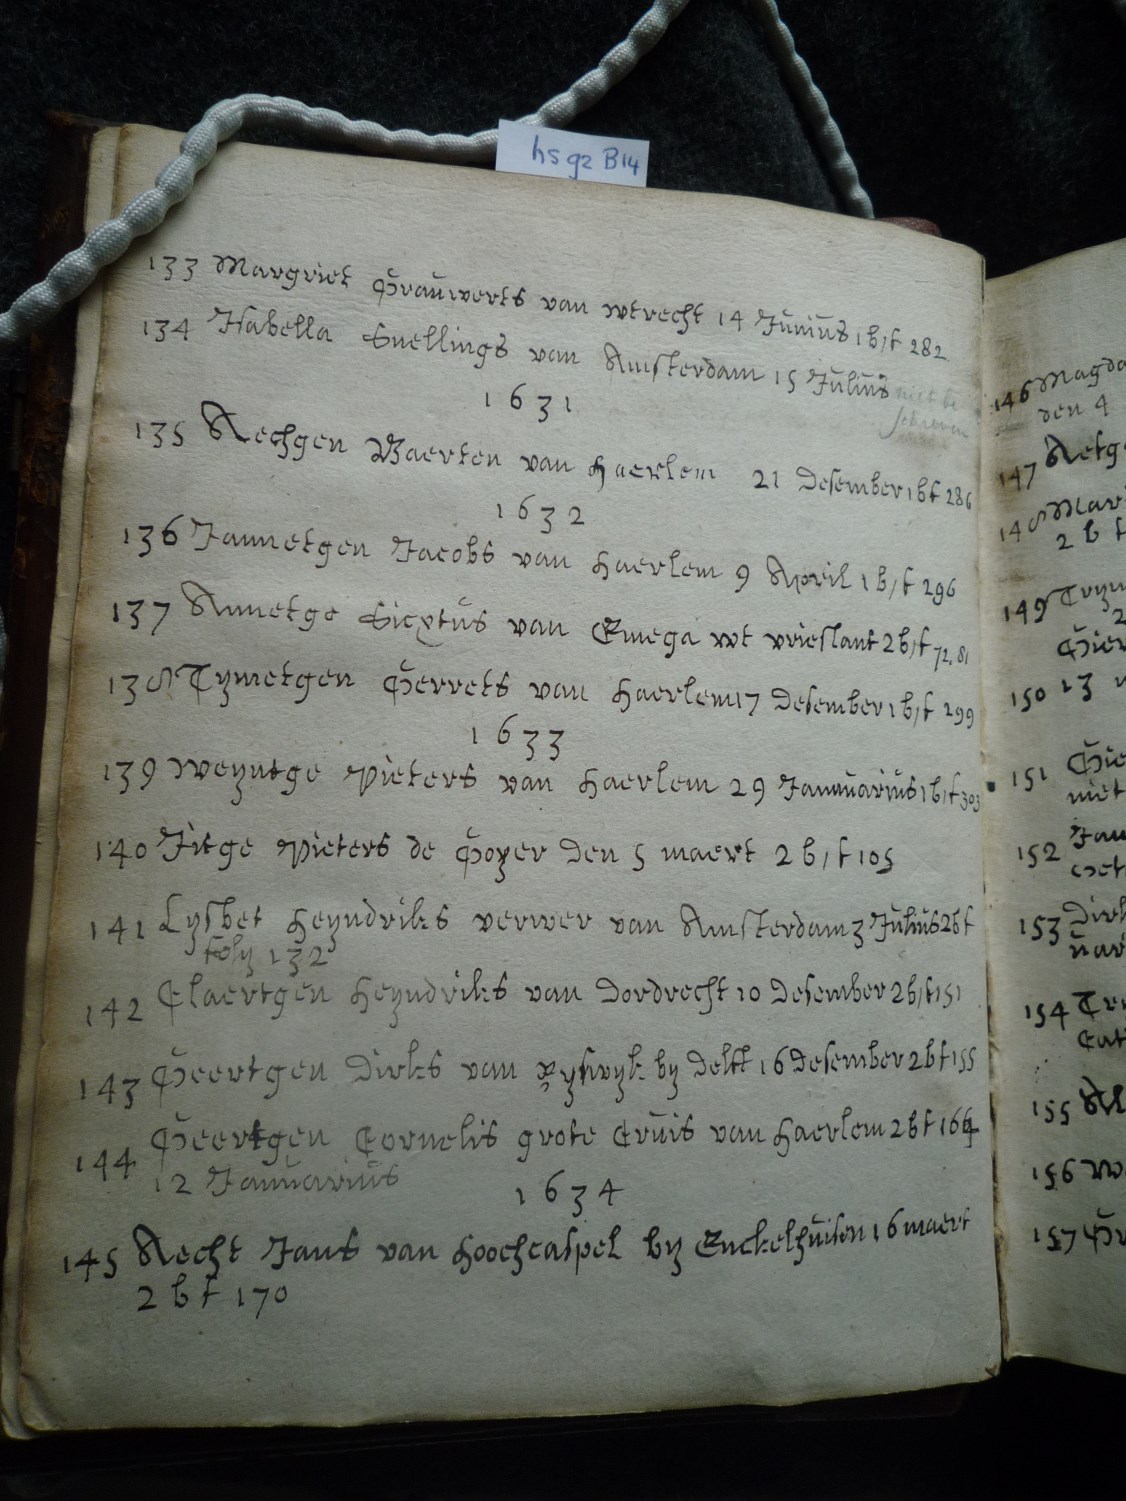 hs 92 B14
133 Margriet Grauwerts van wtrecht 14 Junius 1 b, f 282
134 Isabella Snellings van Amsterdam 15 Julius niet be
schreven
1631
135 Aechgen Baerten van haerlem 21 desember 1 b f 286
1632
136 Jannetgen Jacobs van haerlem 9 April 1 b, f 296
137 Annetge Sicxtus van Emega wt vrieslant 2 b, f 72. 81
138 Tymetgen Gerrets van haerlem 17 desember 1 b, f 299
1633
139 Weyntge pieters van haerlem 29 Januuarius 1 b, f 303
140 Jitge pieters de Goyer den 5 maert 2 b, f 105
141 Lysbet heyndriks verwer van Amsterdam 3 Julius 2 b f
foly 132
142 Claertgen heyndriks van dordrecht 10 desember 2 b, f 151
143 Geertgen dirks van ryswyk by delft 16 desember 2 b f 155
144 Geertgen Cornelis grote Cruis van haerlem 2 b f 164
12 Januarius
1634
145 Aecht Jans van hoochcaspel by Enckelhuisen 16 maert
2 b f 170
146 Magda
den 4
147 Aetg
148 Mar
2 b f
149 Tryn
2
Gier
150 13
151 Gie
niet
152 Jan
153 Dirk
nuari
154 Try
Cat
155 Al
156 W
157 G